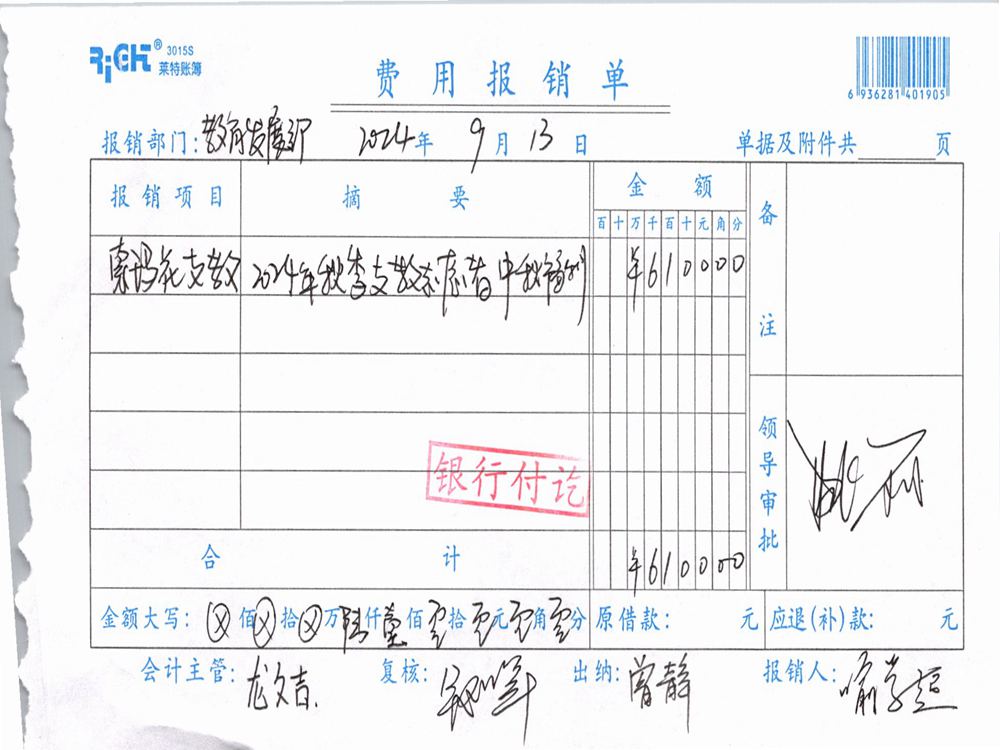 RiCH® 3015S
莱特账簿
费用报销单
6 936281 401905
报销部门:教育发展部 2024年 9月 13日 单据及附件共 页
报销项目 摘要 金额 备注
百十万千百十元角分
索玛花支教 2024年秋季支教志愿者中秋福利 ¥610000
银行付讫
领导审批
合计 ¥610000
金额大写:ⓧ佰ⓧ拾ⓧ万陆仟壹佰零拾零元零角零分 原借款: 元 应退(补)款: 元
会计主管:龙文吉. 复核: 出纳:曾静 报销人: